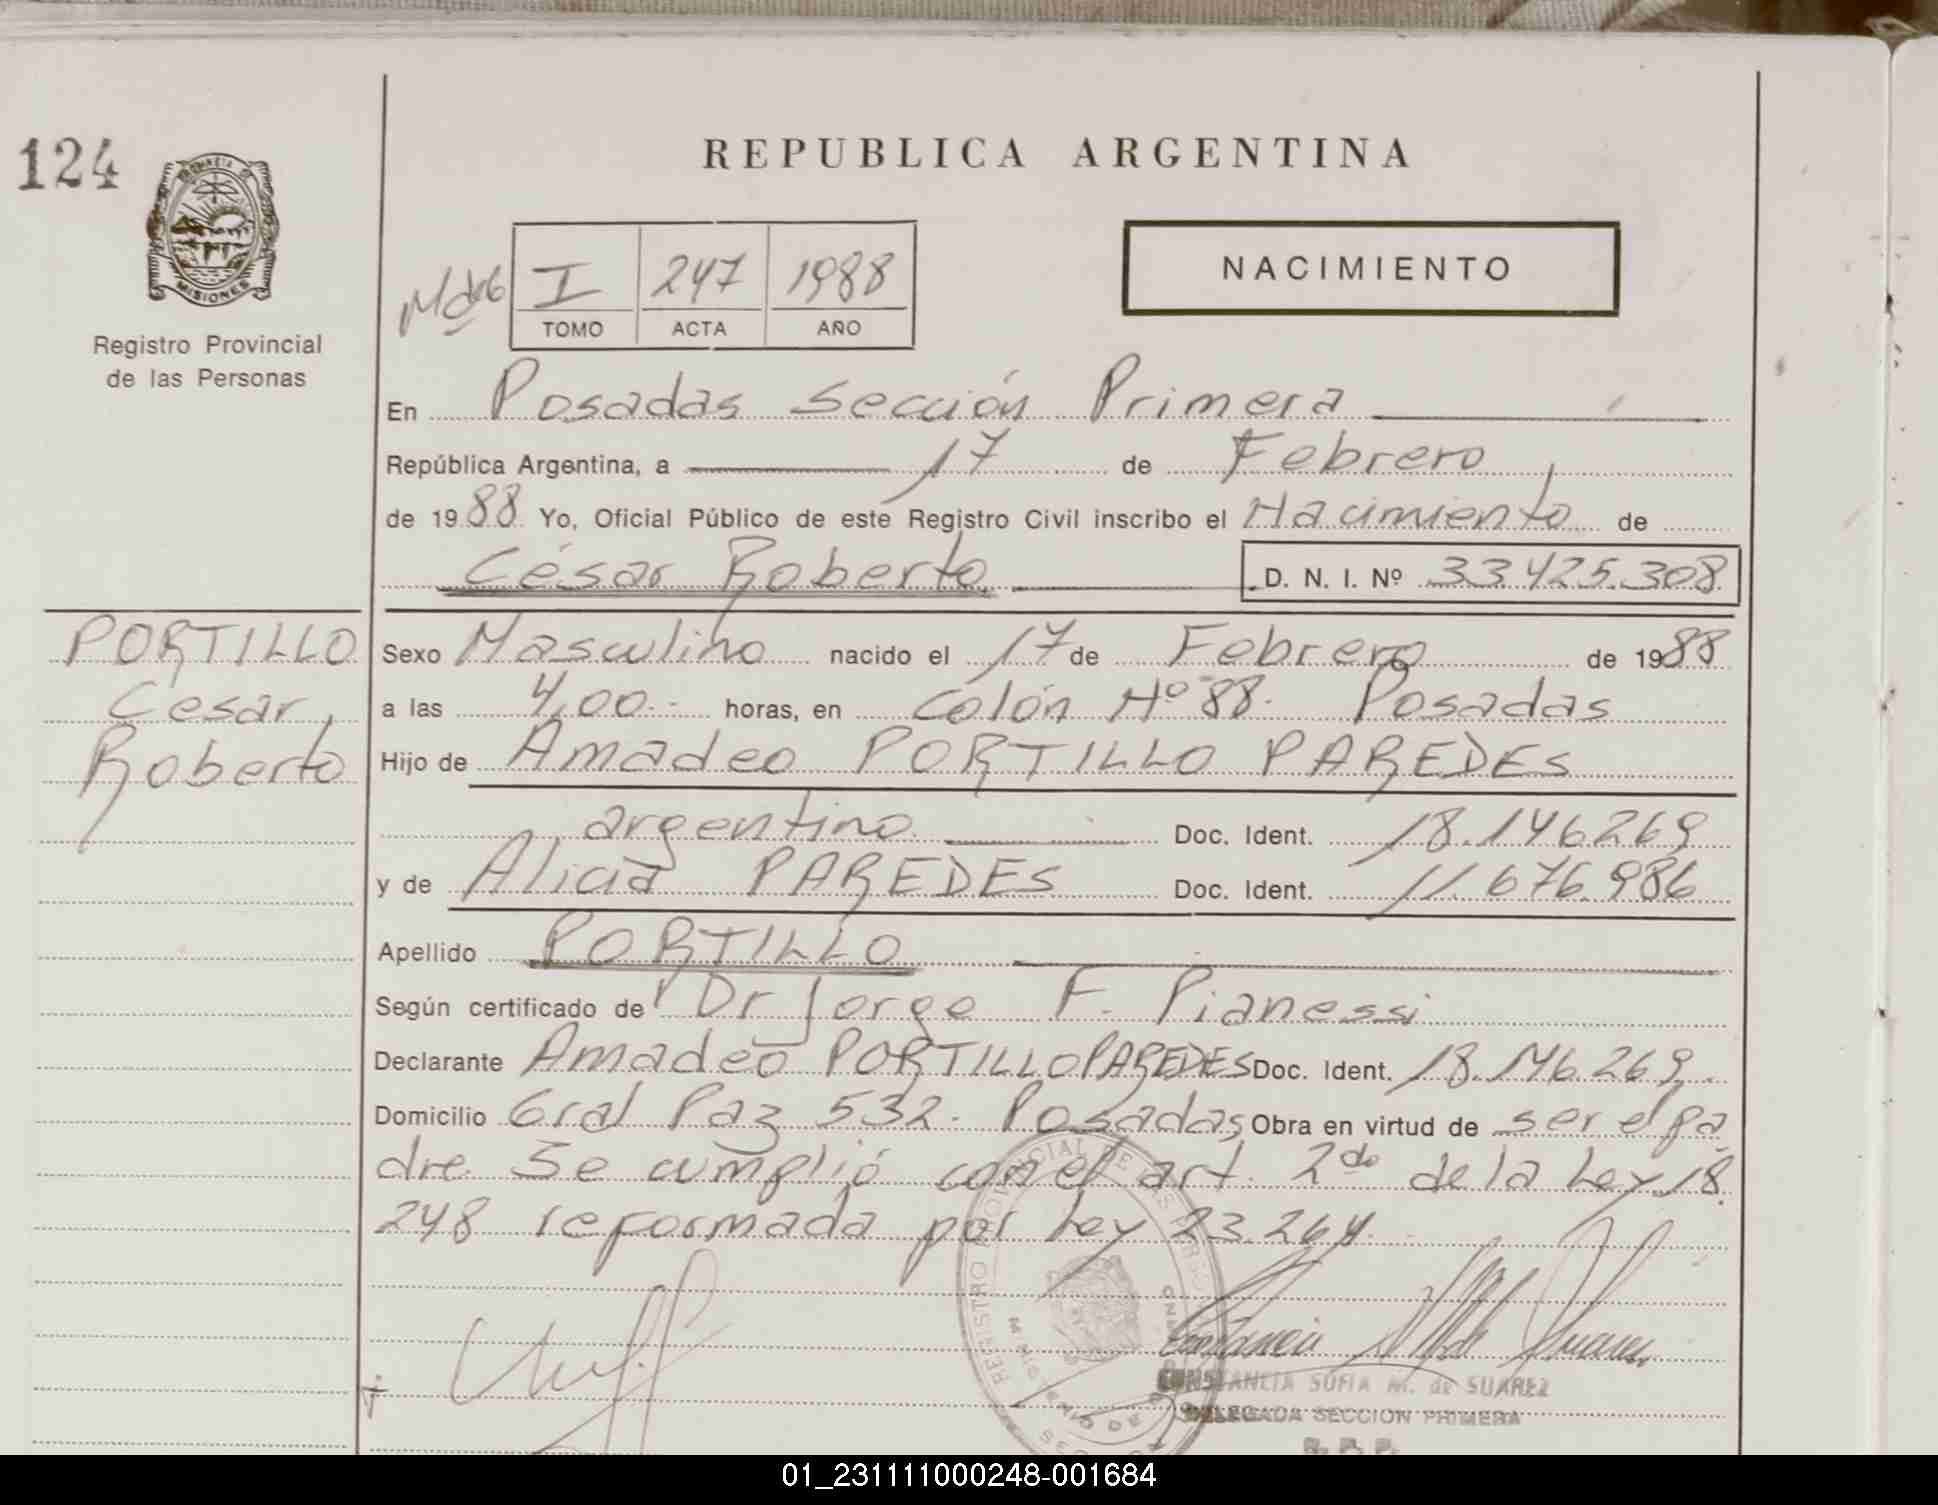 124
REPUBLICA ARGENTINA
PROVINCIA
MISIONES
Registro Provincial
de las Personas
I 247 1988
TOMO ACTA AÑO
NACIMIENTO
En Posadas Sección Primera
República Argentina, a 17 de Febrero
de 1988 Yo, Oficial Público de este Registro Civil inscribo el Nacimiento de
César Roberto D. N. I. Nº 33.425.308
PORTILLO
Cesar
Roberto
Sexo Masculino nacido el 17 de Febrero de 1988
a las 4,00.- horas, en Colón Nº 88. Posadas
Hijo de Amadeo PORTILLO PAREDES
argentino Doc. Ident. 18.146269
y de Alicia PAREDES Doc. Ident. 11.676.986
Apellido PORTILLO
Según certificado de Dr Jorge F. Pianessi
Declarante Amadeo PORTILLO PAREDES Doc. Ident. 18.146.269.
Domicilio Gral Paz 532. Posadas Obra en virtud de ser el pa
dre. Se cumplió con el art. 2do de la Ley 18
248 reformada por Ley 23.264.
REGISTRO PROVINCIAL DE LAS PERSONAS
MINISTERIO DE
CONSTANCIA SOFIA M. de SUAREZ
DELEGADA SECCION PRIMERA
01_231111000248-001684